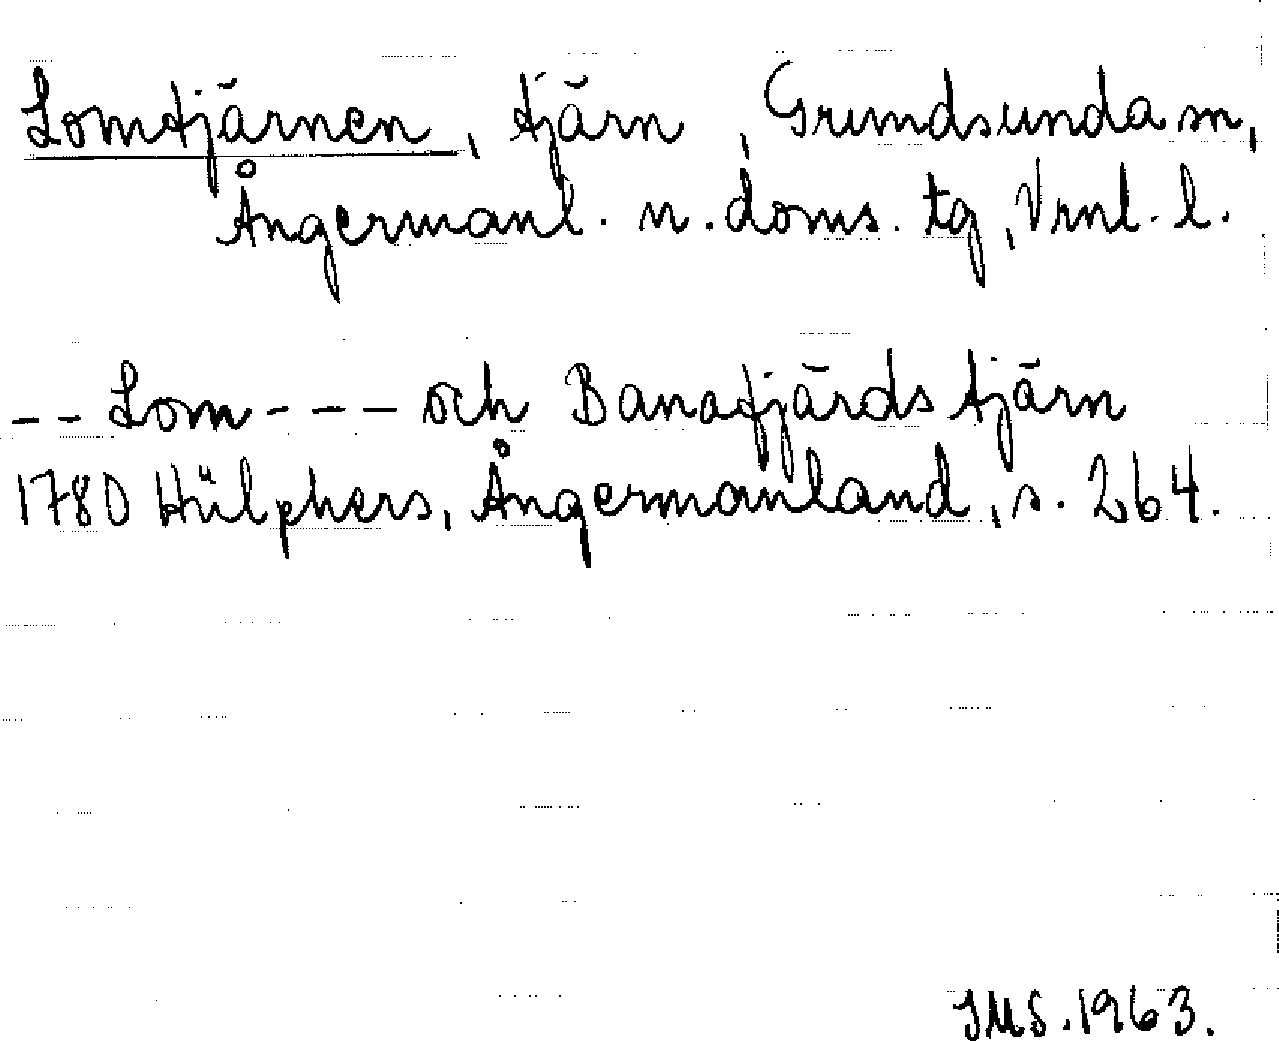 Lomtjärnen, tjärn, Grundsunda sn,
Ångermanl. n. doms. tg, Vrnl. l.
-- Lom --- och Banafjärdstjärn
1780 Hülphers, Ångermanland, s. 264.
IMS. 1963.